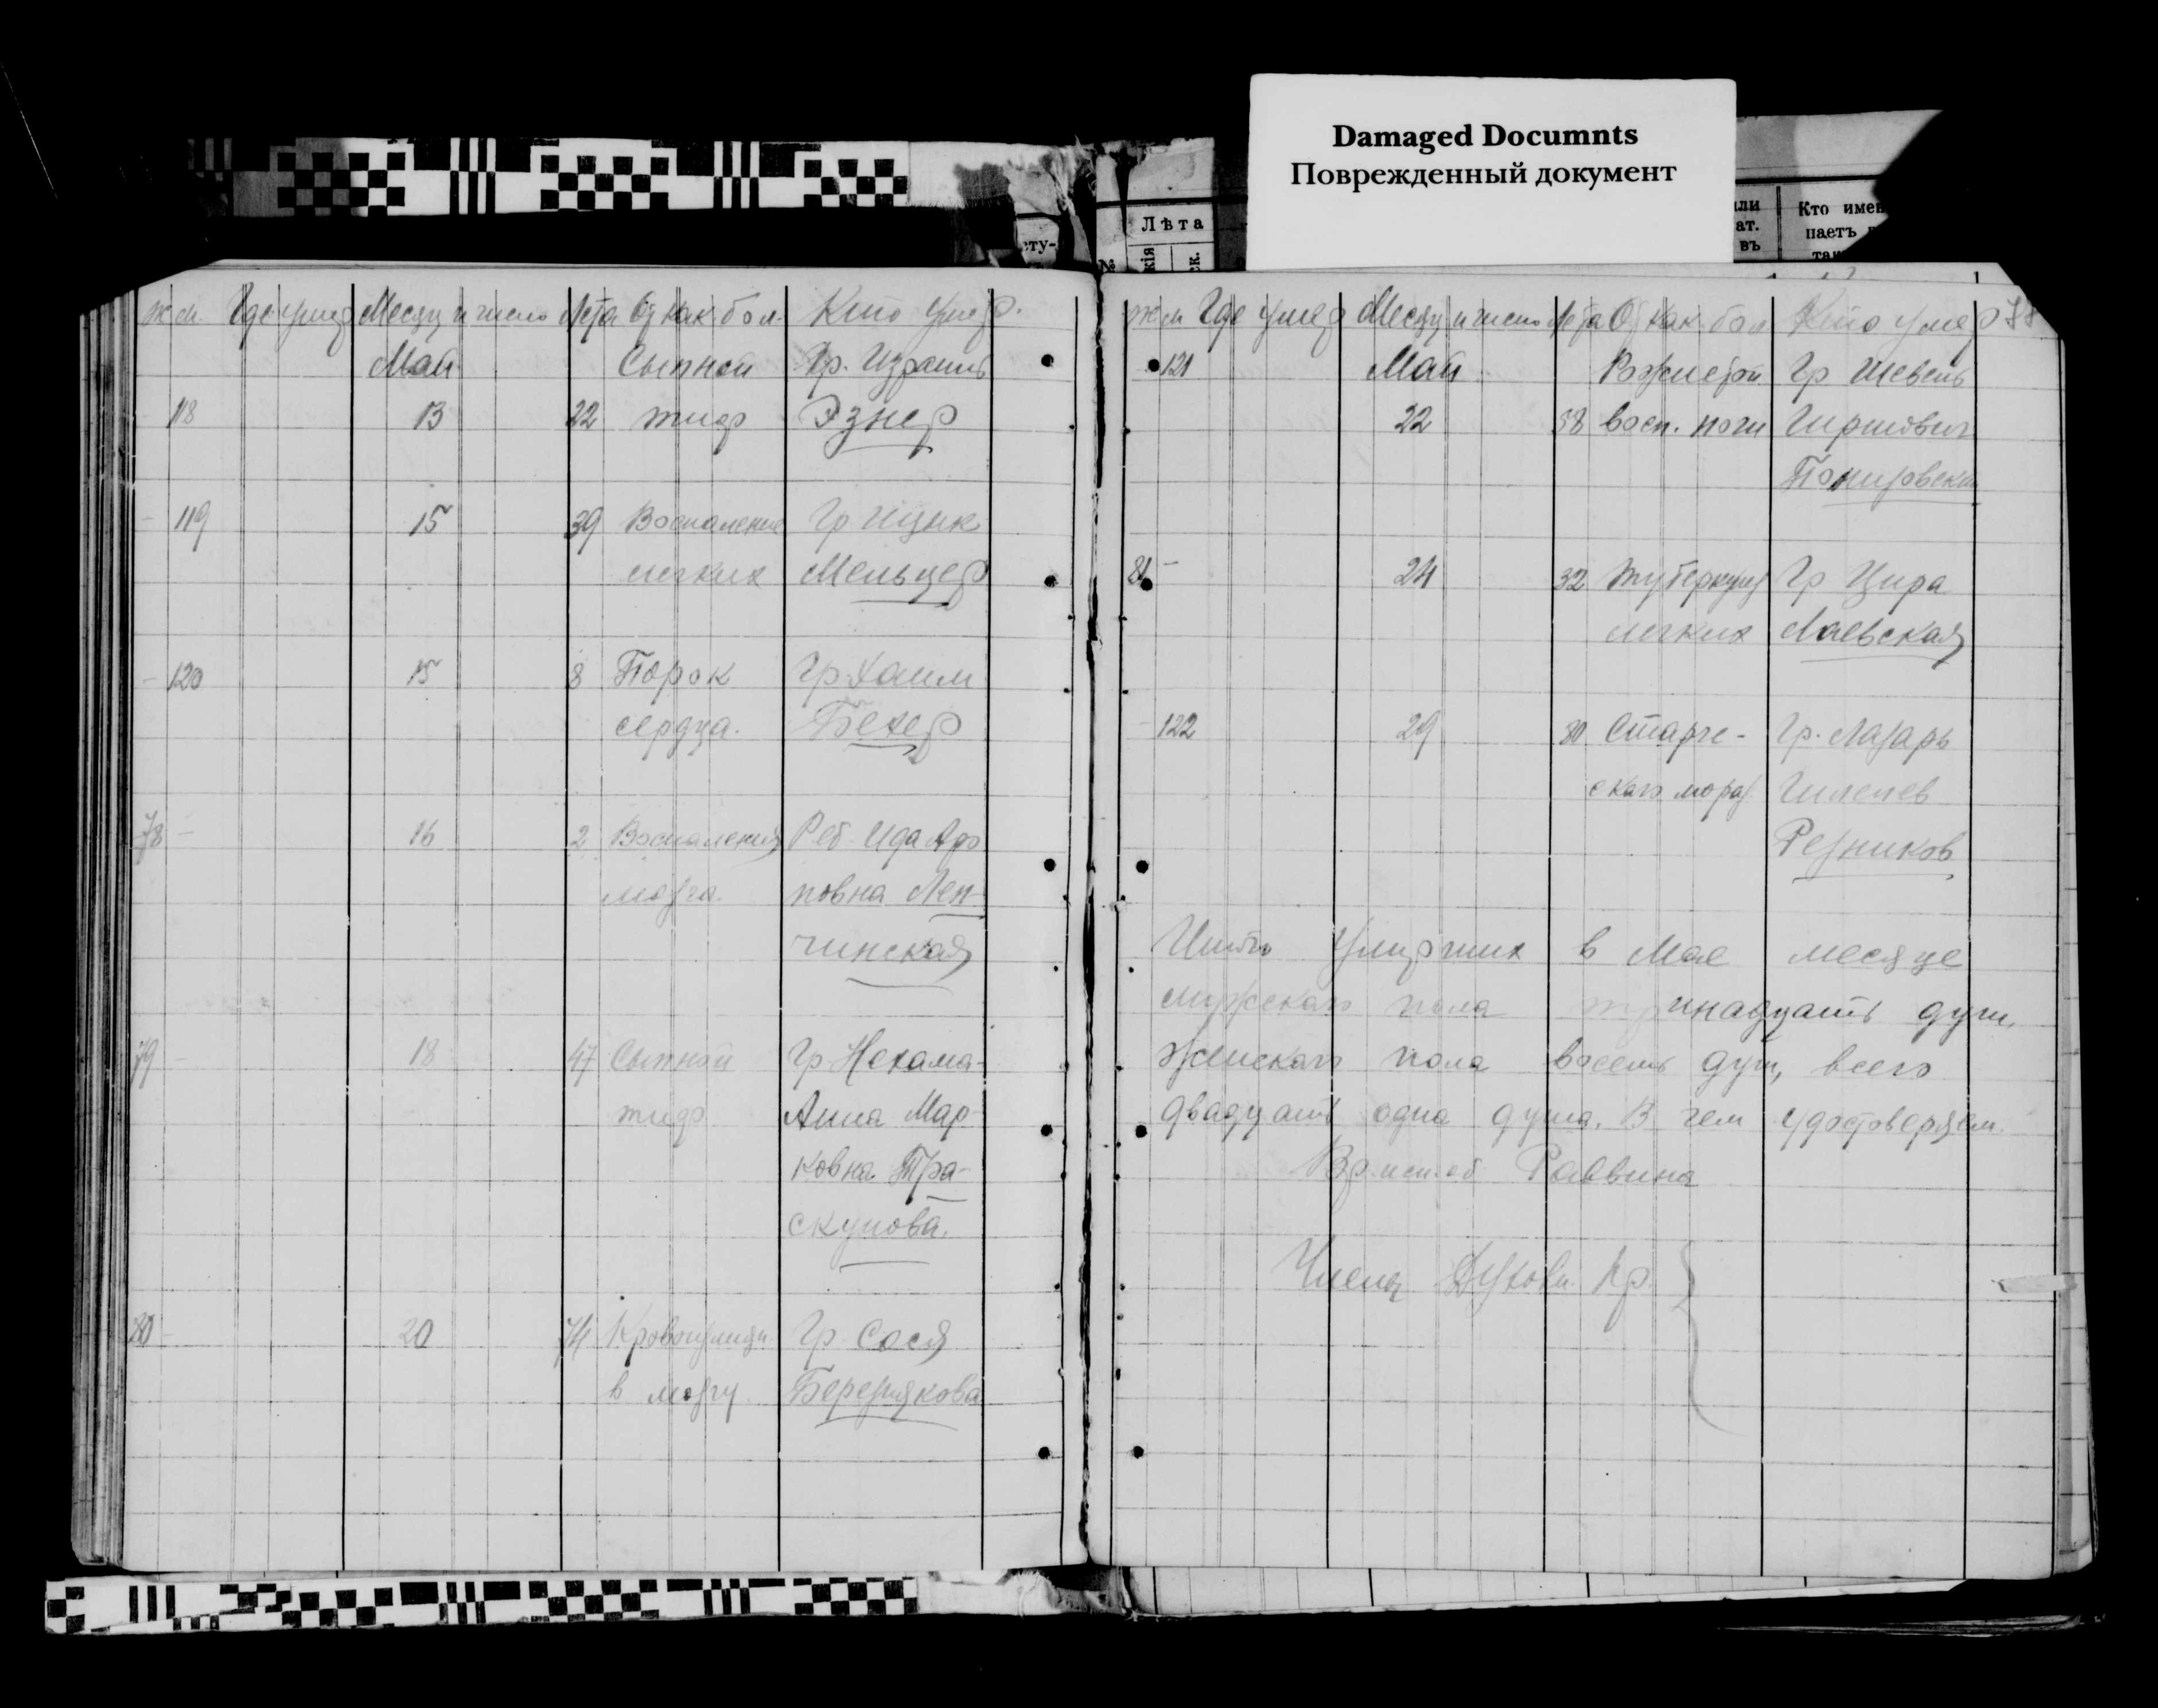 Damaged Documnts
Поврежденный документ
Лѣта
Кто имен
паетъ
ж м. Где умер Месяц и число Лета От как. бол. Кто умер.
Май Сыпной Гр. Израиль
118 13 22 тиф Эзнер
119 15 39 Воспаление Гр Ицик
легких Мельцер
120 15 8 Порок Гр Хаим
сердца. Бехер
78 - 16 2 Воспаления Реб Ида Аро
мозга. новна Леп-
чинская
79 - 18 47 Сыпной Гр Нехама-
тиф Анна Мар-
ковна Тра-
скунова.
80 - 20 74 Кровоизлиян.
Гр Сося
в мозгу Березнякова
ж м Где умер Месяц и число Лета От как. бол Кто умер 78
121 Май Гр Шевель
22 58 восп. почи Гиршович
81 - 24 32 Туберкулез Гр Цира
легких Лаевская
122 29 80 Старче- Гр. Лазарь
скаго мараз
Резников
Итого умерших в Мае месяце
мужскаго пола тринадцать душ,
женскаго пола восемь душ, всего
двадцать одна душа. В чем удостоверяем.
Вр. исп. об Раввина
Члены Духовн. Пр.